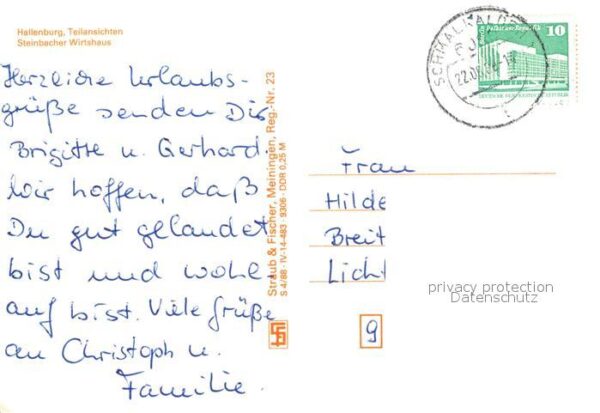 Hallenburg, Teilansichten
Steinbacher Wirtshaus
Herzliche Urlaubs-
grüße senden Dir
Brigitte u. Gerhard.
Wir hoffen, daß
Du gut gelandet
bist und wohl
auf bist. Viele Grüße
an Christoph u.
Familie.
Straub & Fischer, Meiningen, Reg.-Nr. 23
S 4/88 · IV-14-483 · 9306 · DDR 0,25 M
SCHMALKALDEN
10
Frau
Hilde
Breit
Licht
privacy protection
Datenschutz
9